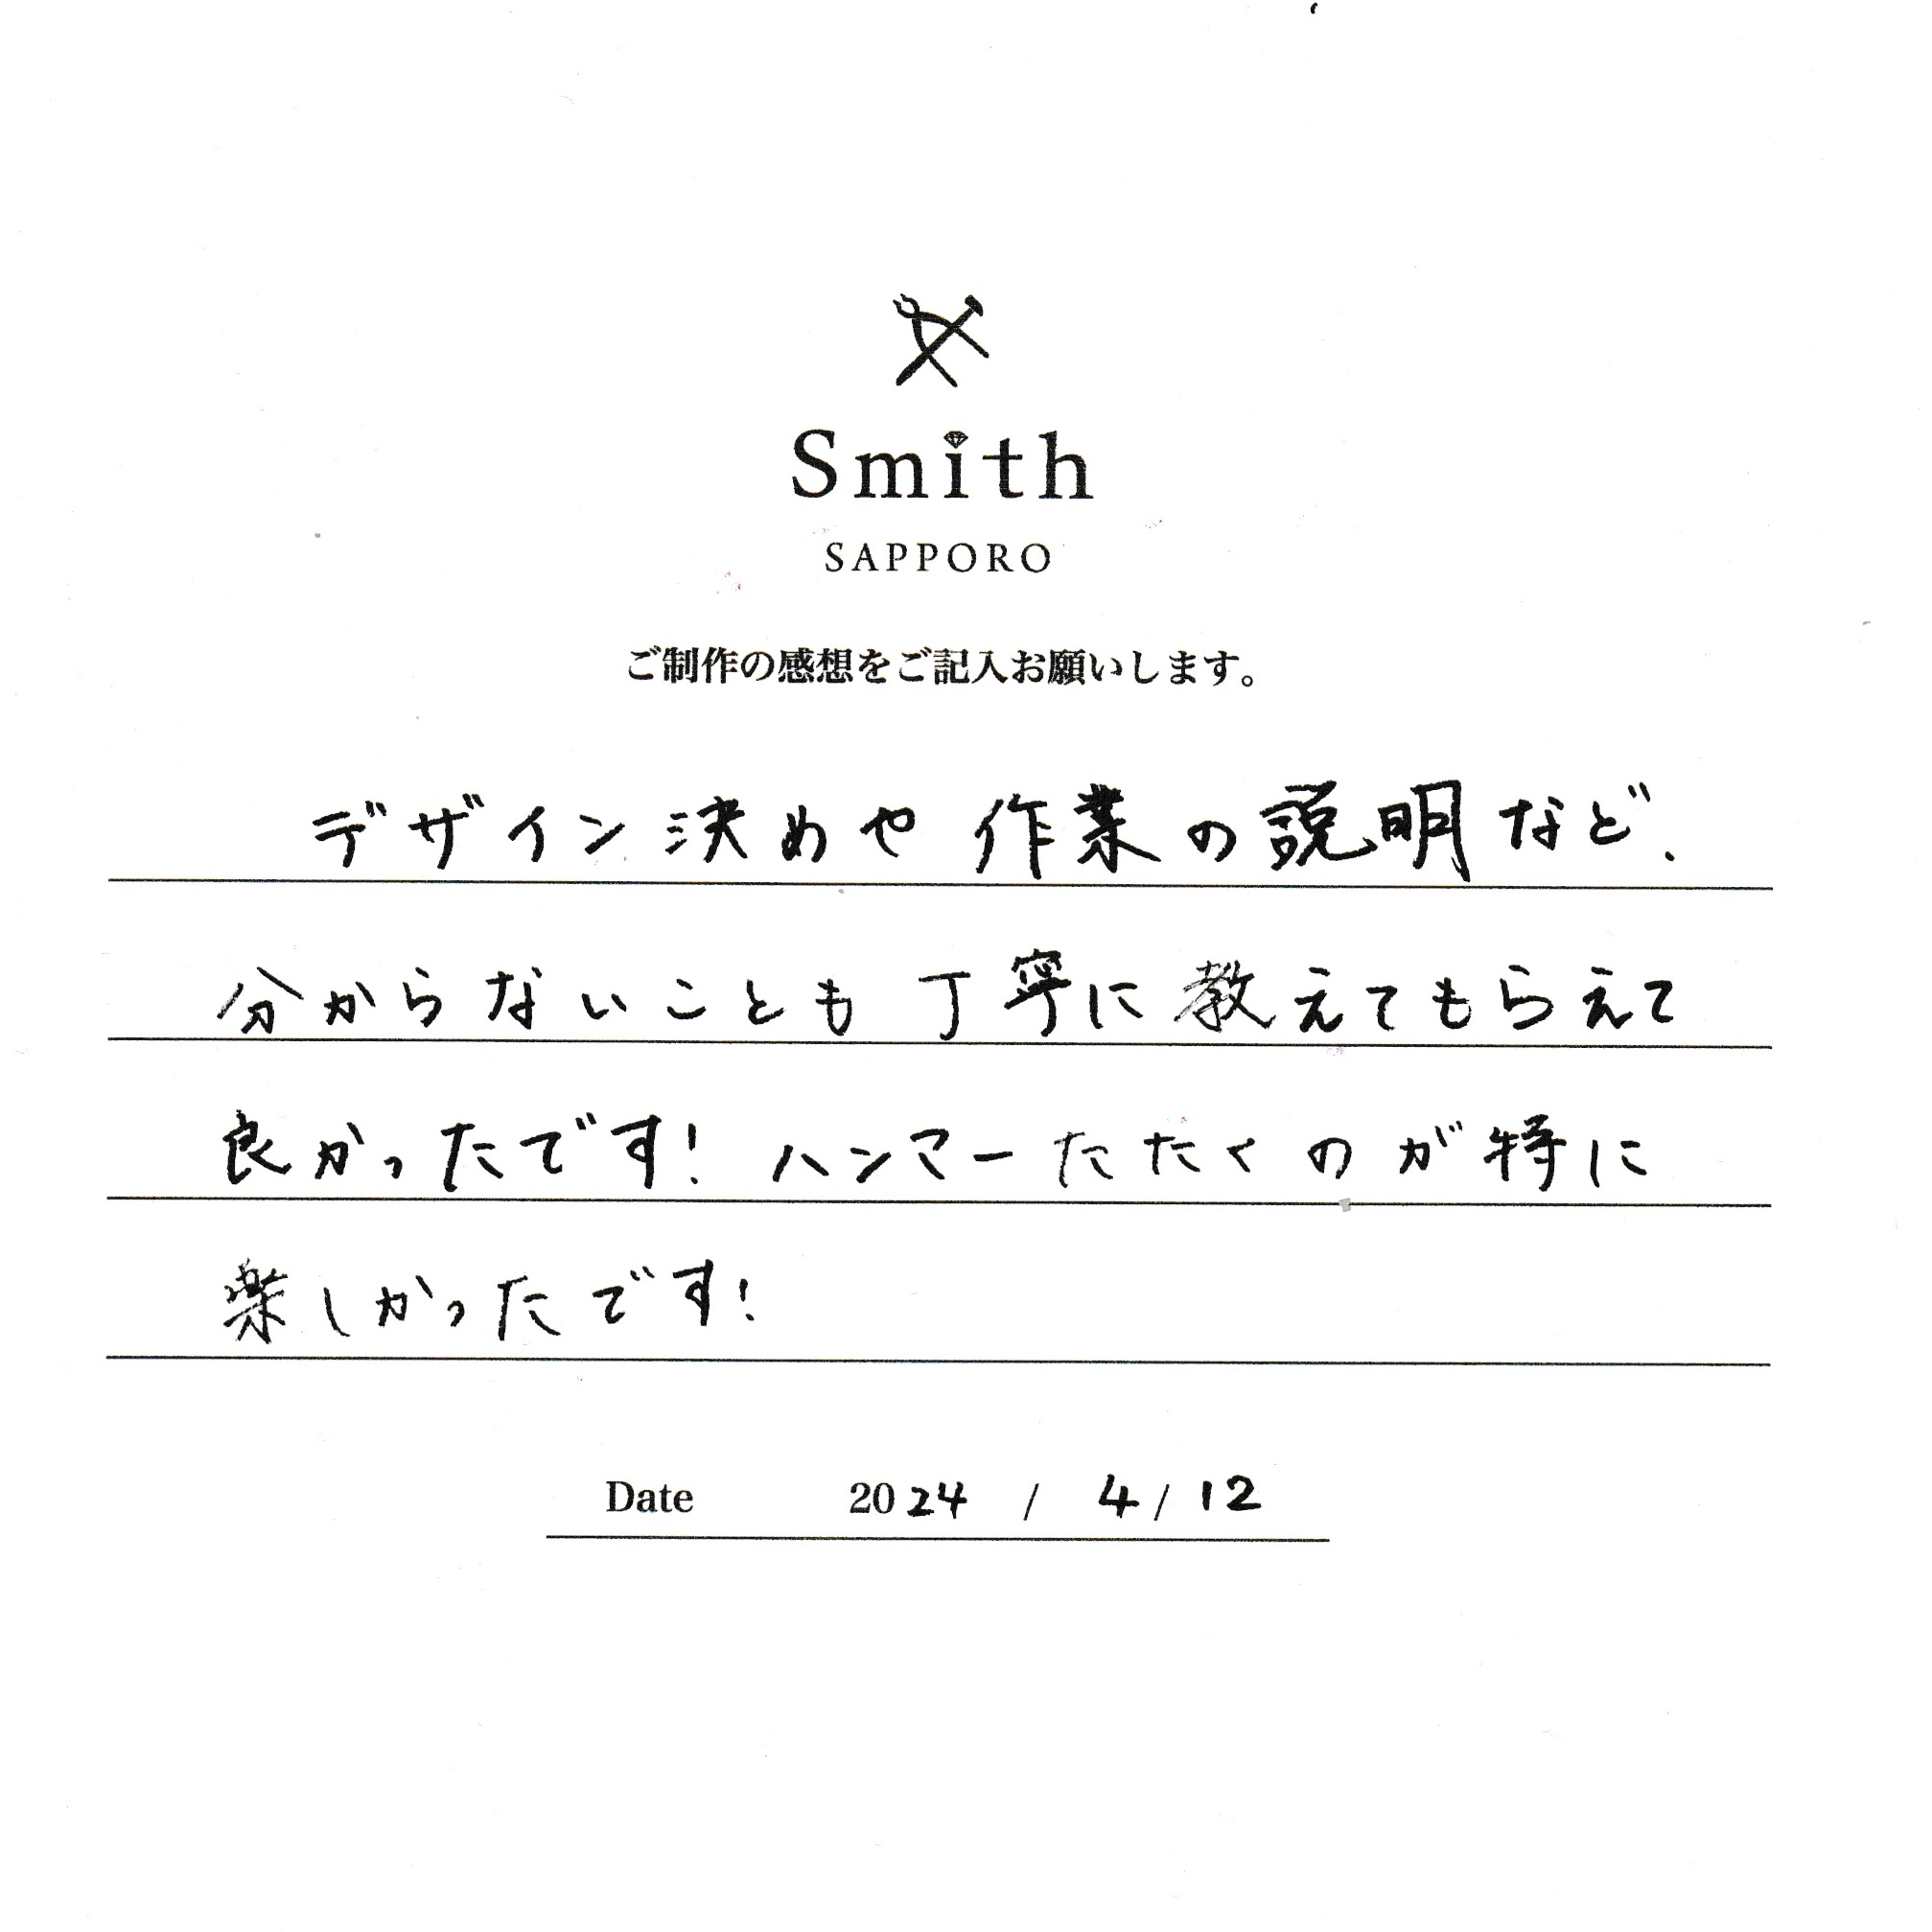 Smith
SAPPORO
ご制作の感想をご記入お願いします。
デザイン決めや作業の説明など、
分からないことも丁寧に教えてもらえて
良かったです!ハンマーたたくのが特に
楽しかったです!
Date 2024 / 4 / 12